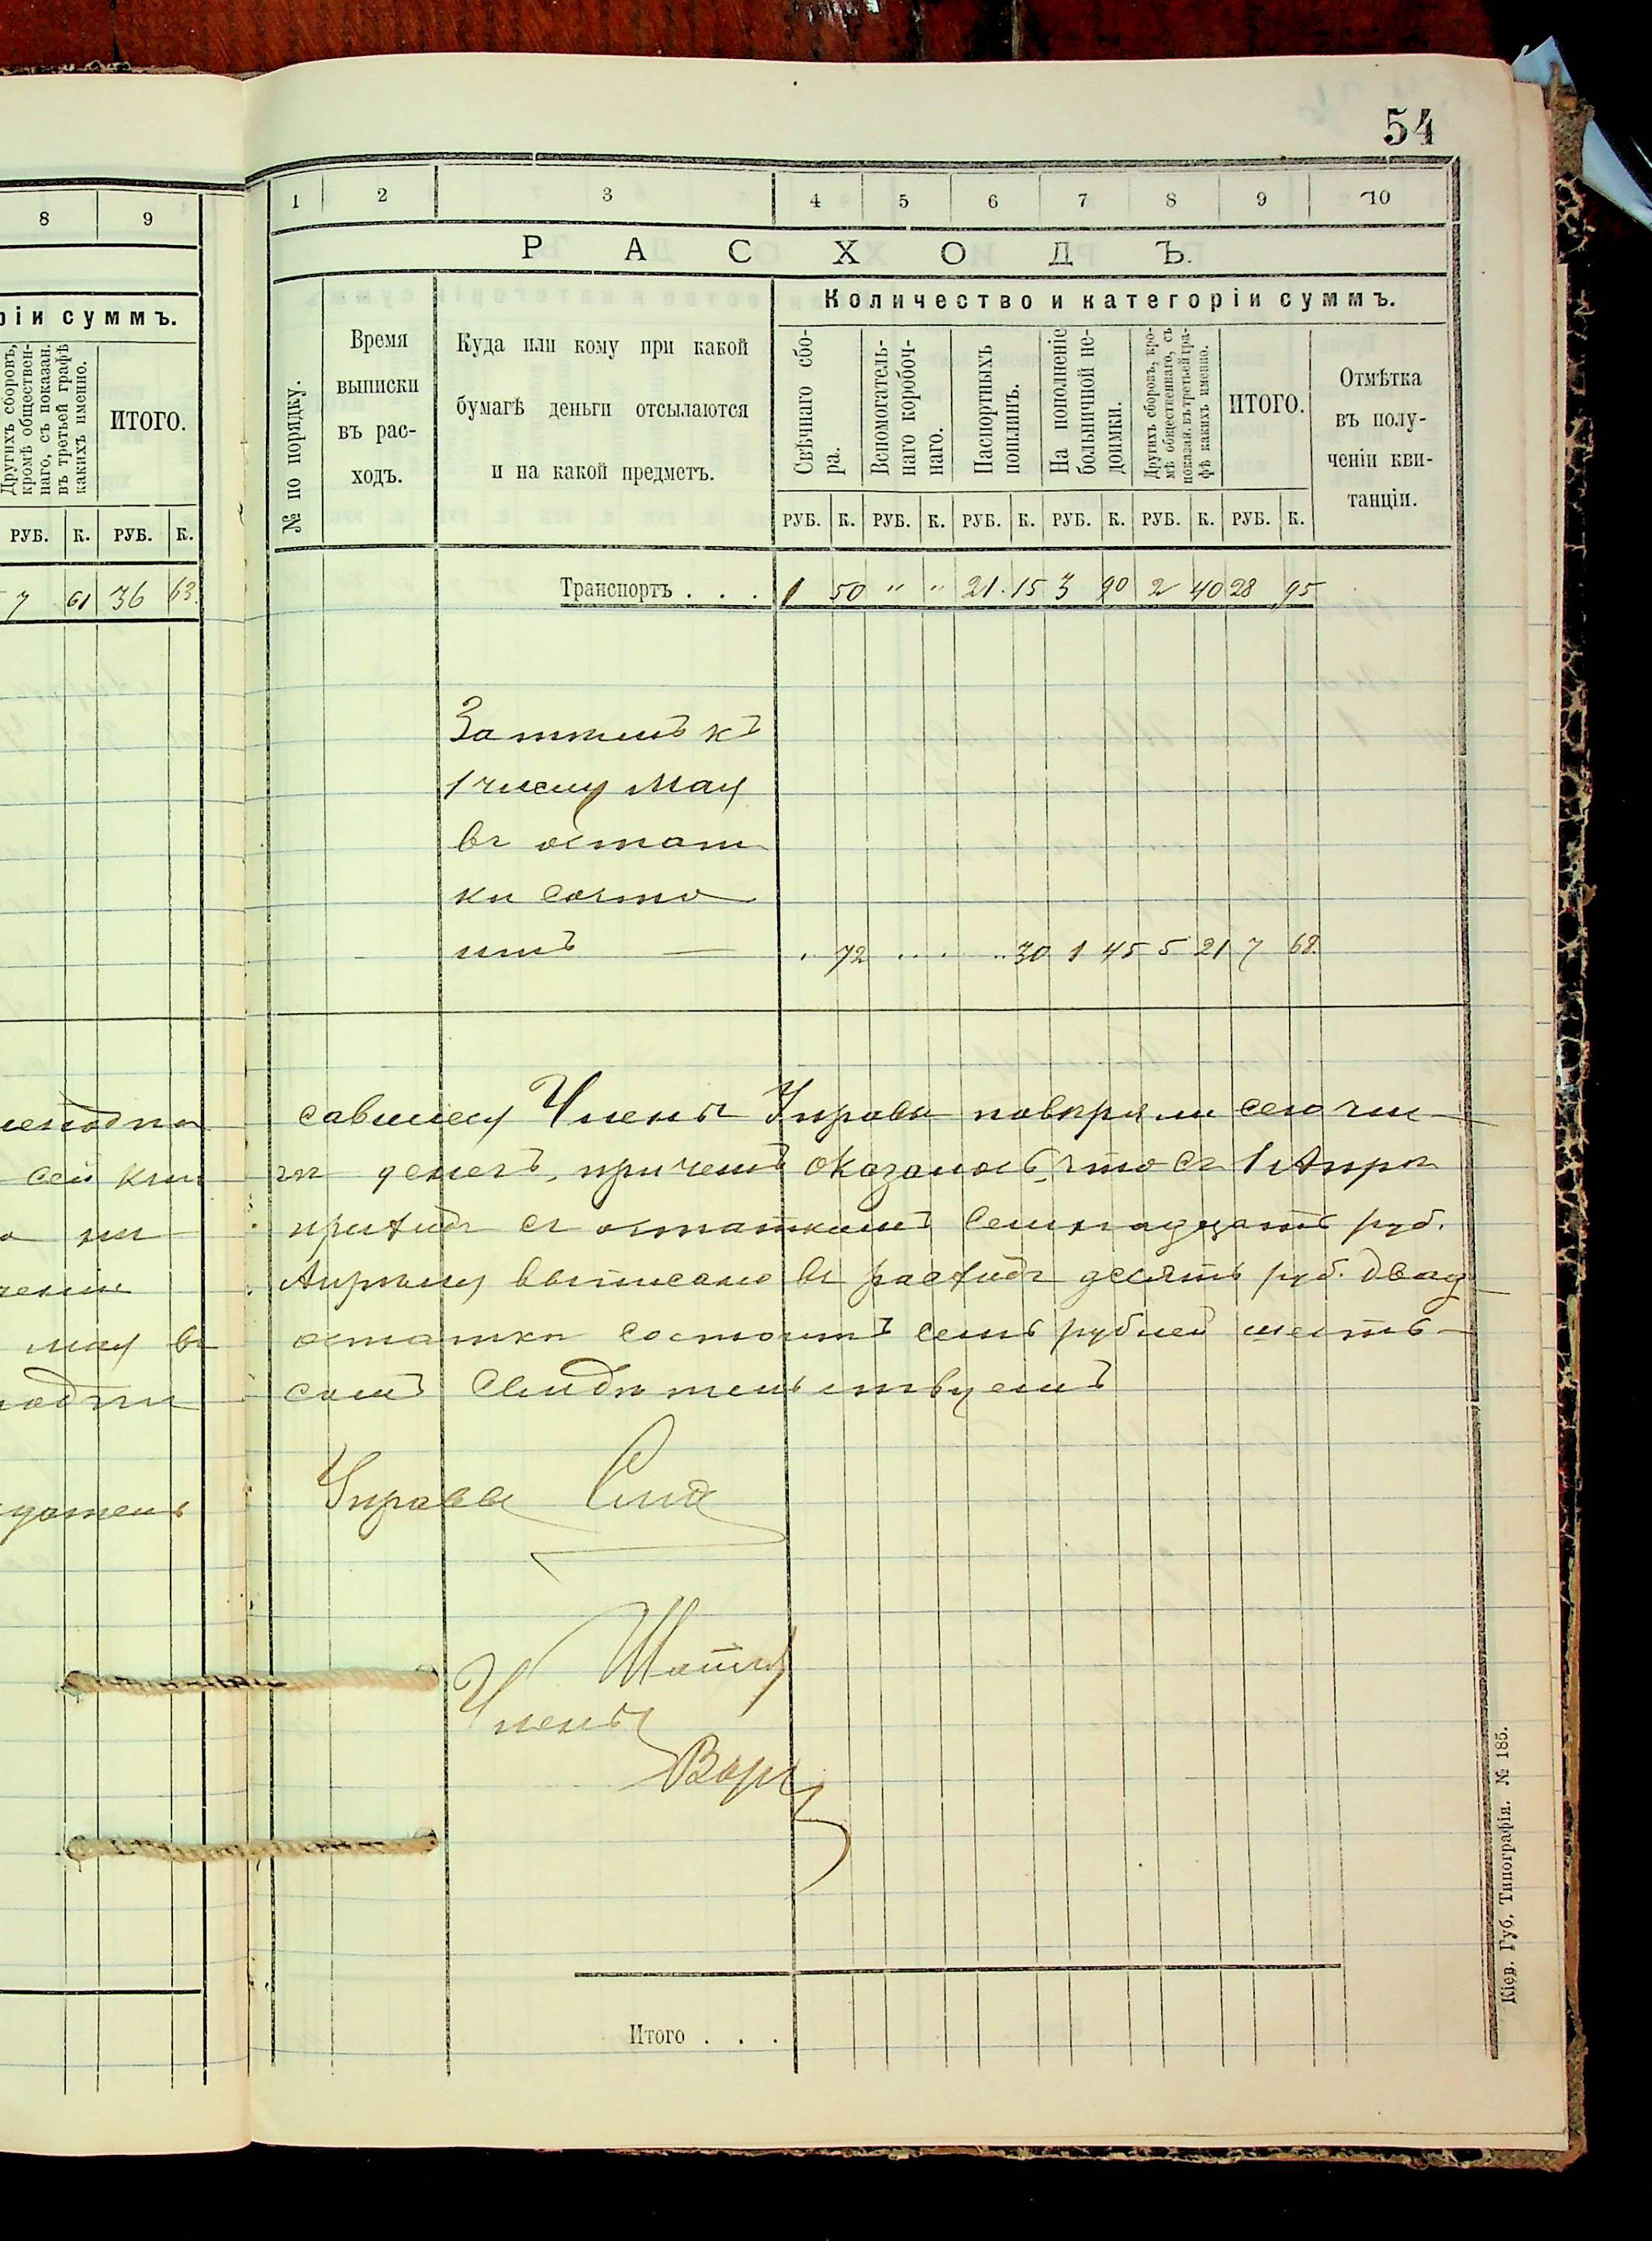 54
8 9
ріи суммъ.
Другихъ сборовъ,
кромѣ обществен-
наго, съ показан.
въ третьей графѣ
какихъ именно.
ИТОГО.
РУБ. К. РУБ. К.
7 61 36 63.
сей
мая въ
1 2 3 4 5 6 7 8 9 10
РАСХОДЪ.
№ по порядку.
Время
выписки
въ рас-
ходъ.
Куда или кому при какой
бумагѣ деньги отсылаются
и на какой предметъ.
Количество и категоріи суммъ.
Свѣчнаго сбо-
ра.
Вспомогатель-
наго коробоч-
наго.
Паспортныхъ
пошлинъ.
На пополненіе
больничной не-
доимки.
Другихъ сборовъ, кро-
мѣ общественнаго, съ
показан. въ третьей гра-
фѣ какихъ именно.
ИТОГО.
Отмѣтка
въ полу-
ченіи кви-
танціи.
РУБ. К. РУБ. К. РУБ. К. РУБ. К. РУБ. К. РУБ. К.
Транспортъ . . . 1 50 " " 21. 15 3 90 2 40 28 95
Затѣмъ къ
1 числу Мая
въ остат
кѣ состо
итъ — . 72 .. .. .. 30 1 45 5 21 7 68.
савшіеся Члены Управы повѣряли сего чи-
денегъ, причемъ оказалось, что съ 1 Апрѣ
приходѣ съ остаткомъ семнадцать руб.
Апрѣля выписано въ расходъ десять руб. двад-
остаткѣ состоитъ семь рублей шесть-
свидѣтельствуемъ
Управы
Члены
Итого . . .
Кіев. Губ. Типографія. № 185.